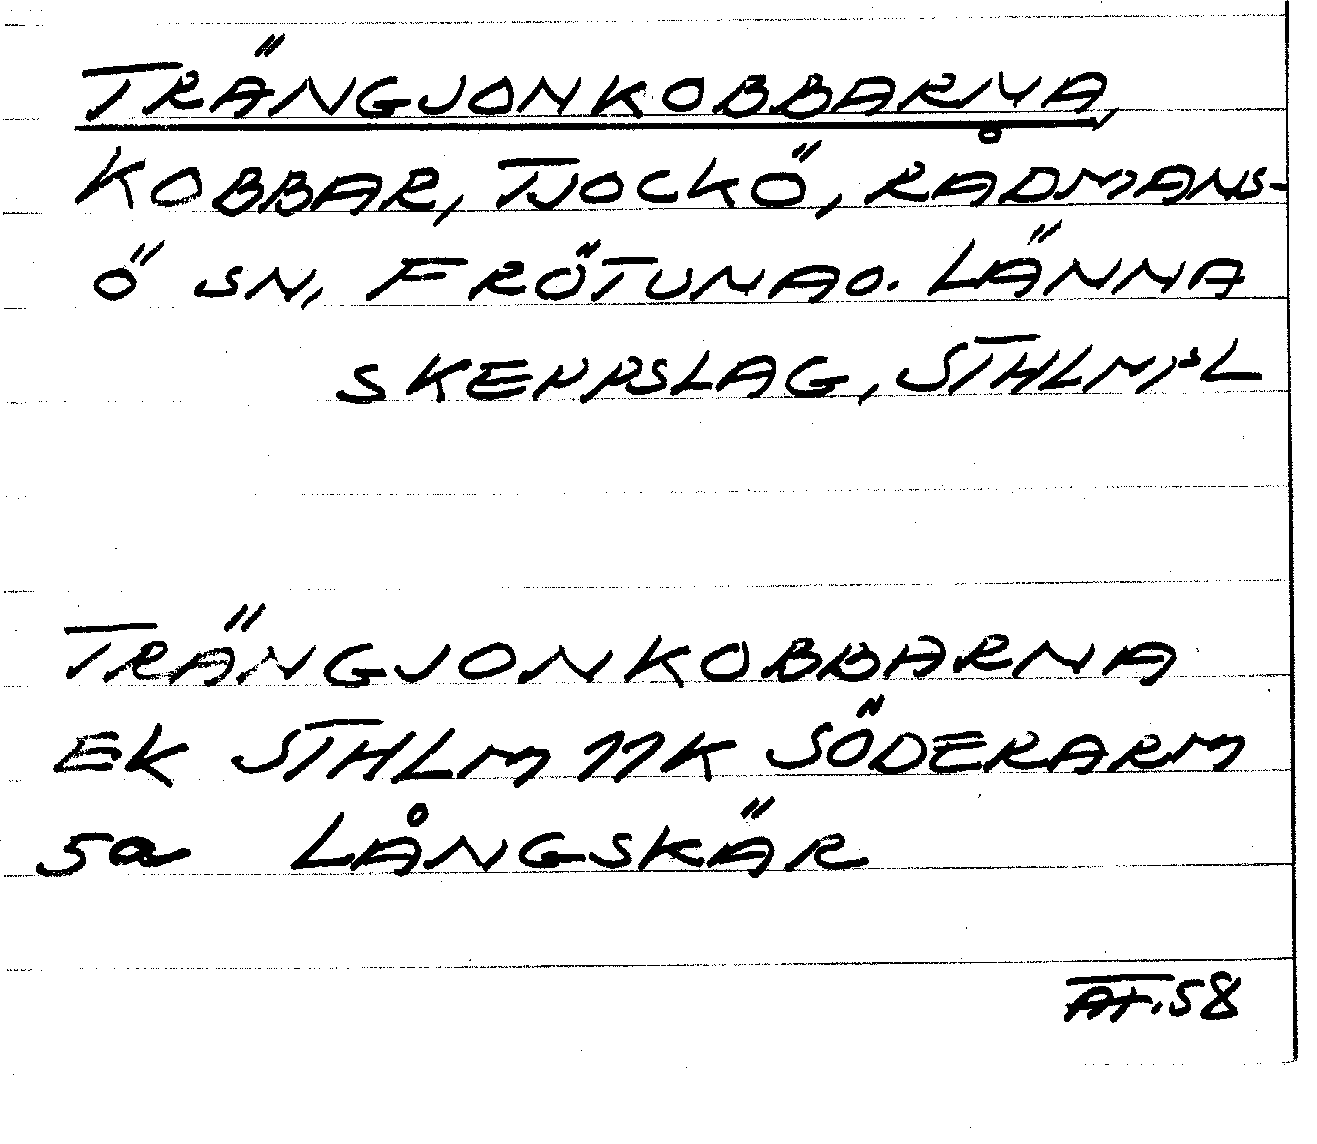 TRÄNGJONKOBBARNA,
KOBBAR, TJOCKÖ, RÅDMANS-
Ö SN, FRÖTUNA O. LÄNNA
SKEPPSLAG, STHLMSL
TRÄNGJONKOBBARNA
EK STHLM 11K SÖDERARM
5a LÅNGSKÄR
AT.58